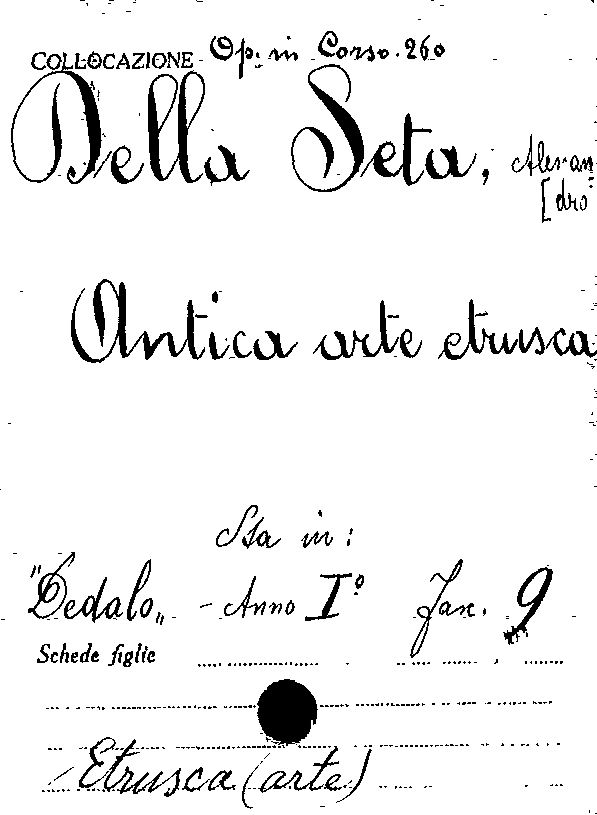 COLLOCAZIONE Op. in Corso. 260
Della Seta, Alexan
[dro
Antica arte etrusca
Sta in:
"Dedalo„ - Anno I° Fasc. 9
Schede figlie
Etrusca (arte)